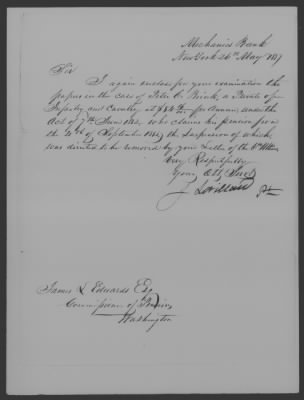 Mechanics Bank
New York 26th May 1837
Sir
I again enclose for your examination the
papers in the case of Peter C. Brink, a Private of
Infantry and Cavalry, at $ per Annum, under the
Act of 7th June 1832, who claims his pension from
the of September the suspension of which
was directed to be removed by your Letter of the Ulto
Very Respectfully
Your Obt Servt
J. Lorillard
James L Edwards Esq
Commissioner of Pensions
Washington